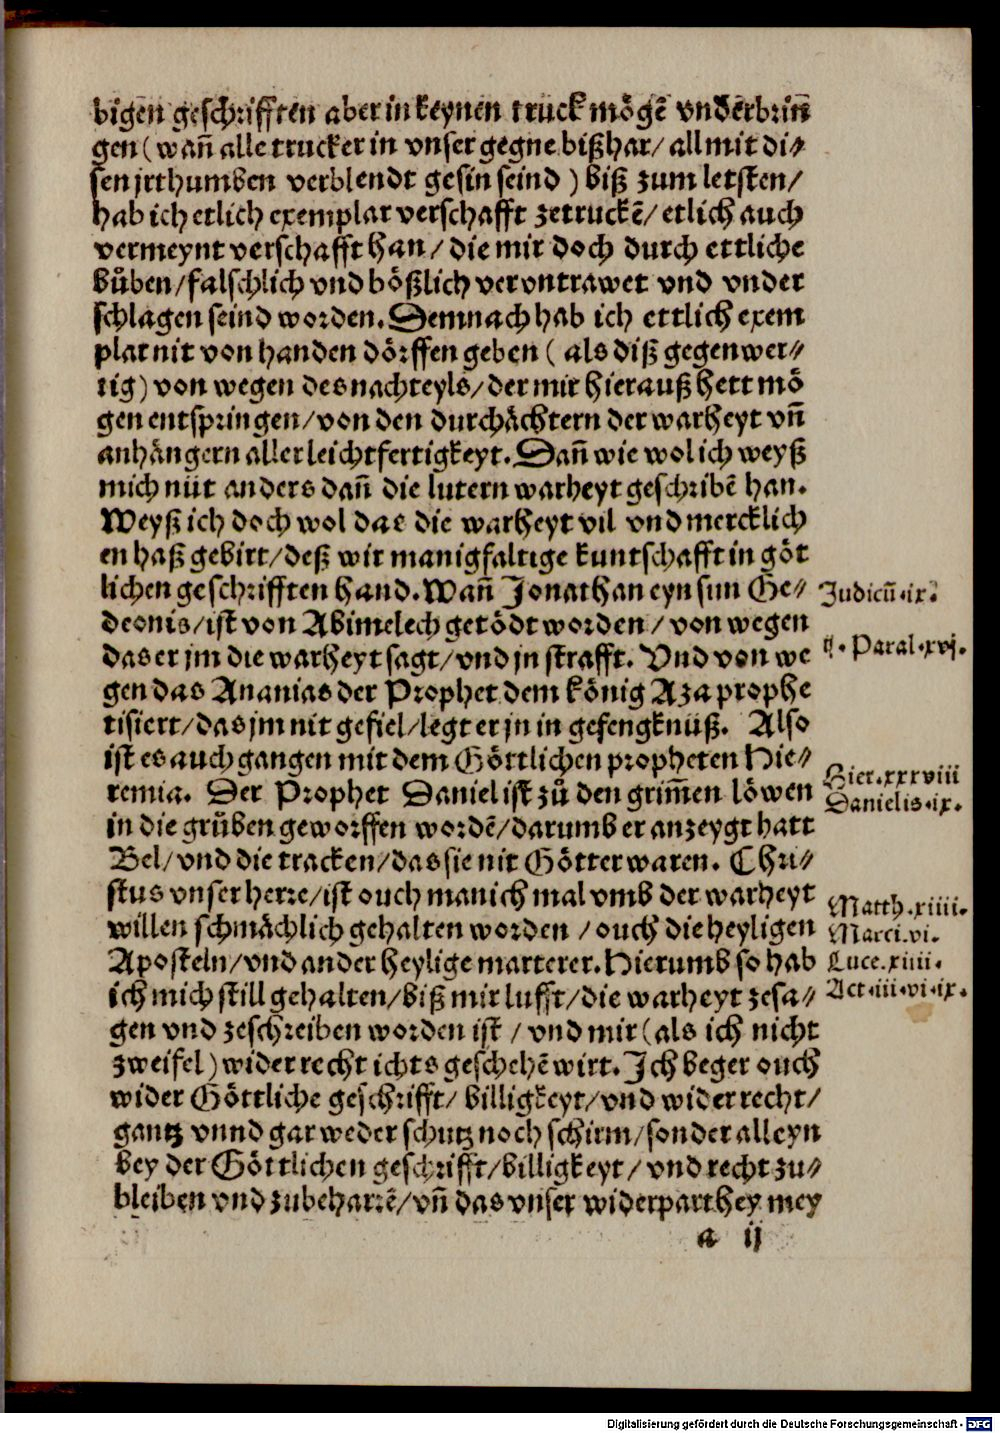 bigen geschrifften aber in keynen truck mögē vnderbrin̄
gen (wan̄ alle trucker in vnser gegne bißhar/ all mit di⸗
sen jrthumben verblendt gesin seind) biß zum letsten/
hab ich etlich exemplar verschafft zetruckē/ etlich auch
vermeynt verschafft han/ die mir doch durch ettliche
bůben/falschlich vnd bößlich vervntrawet vnd vnder
schlagen seind worden. Demnach hab ich ettlich exem
plar nit von handen dörffen geben (als diß gegenwer⸗
tig) von wegen des nachteyls/der mir hierauß hett mö
gen entspringen/von den durchächtern der warheyt vn̄
anhängern aller leichtfertigkeyt. Dan̄ wie wol ich weyß
mich nüt anders dan̄ die lutern warheyt geschribē han.
Weyß ich doch wol das die warheyt vil vnd mercklich
en haß gebirt/deß wir manigfaltige kuntschafft in göt
lichen geschrifften hand. Wan̄ Jonathan eyn sun Ge⸗
deonis/ist von Abimelech getödt worden/ von wegen
das er jm die warheyt sagt/vnd jn strafft. Vnd von we
gen das Ananias der Prophet dem könig Aza prophe
tisiert/das jm nit gefiel/legt er jn in gefengknüß. Also
ist es auch gangen mit dem Göttlichen propheten Hie⸗
remia. Der Prophet Daniel ist zů den grim̄en löwen
in die grůben geworffen wordē/darumb er anzeygt hatt
Bel/vnd die tracken/das sie nit Götter waren. Chri⸗
stus vnser herre/ist ouch manich mal vmb der warheyt
willen schmächlich gehalten worden /ouch die heyligen
Aposteln/vnd ander heylige marterer. Hierumb so hab
ich mich still gehalten/biß mir lufft/die warheyt zesa⸗
gen vnd zeschreiben worden ist / vnd mir (als ich nicht
zweifel) wider recht ichts geschehē wirt. Ich beger ouch
wider Göttliche geschrifft/ billigkeyt/vnd wider recht/
gantz vnnd gar weder schutz noch schirm/sonder alleyn
bey der Göttlichen geschrifft/billigkeyt/ vnd recht zu⸗
bleiben vnd zubeharrē/vn̄ das vnser widerparthey mey
a ij
Judicū.ix.
ij. Paral.xvj.
Hier.xxxviii
Danielis.ix.
Matth.xiiii.
Marci.vi.
Luce.xiiii.
Act.iii.vi.ix.
Digitalisierung gefördert durch die Deutsche Forschungsgemeinschaft - DFG